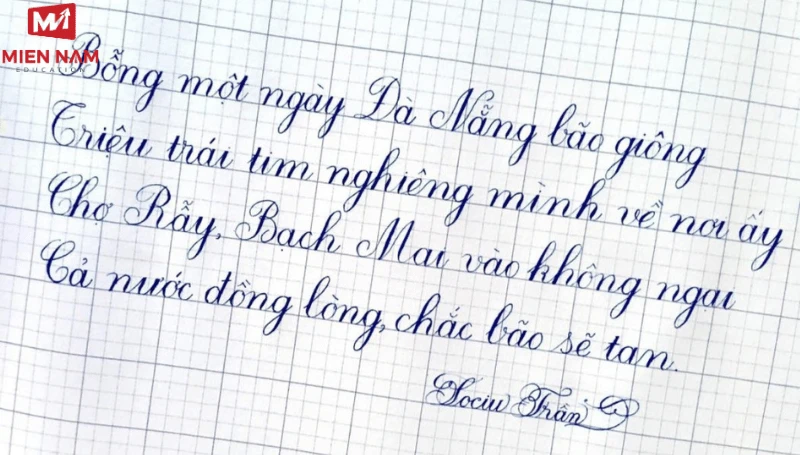 MIEN NAM
EDUCATION
Bỗng một ngày Đà Nẵng bão giông
Triệu trái tim nghiêng mình về nơi ấy
Chợ Rẫy, Bạch Mai vào không ngại
Cả nước đồng lòng, chắc bão sẽ tan.
Trần